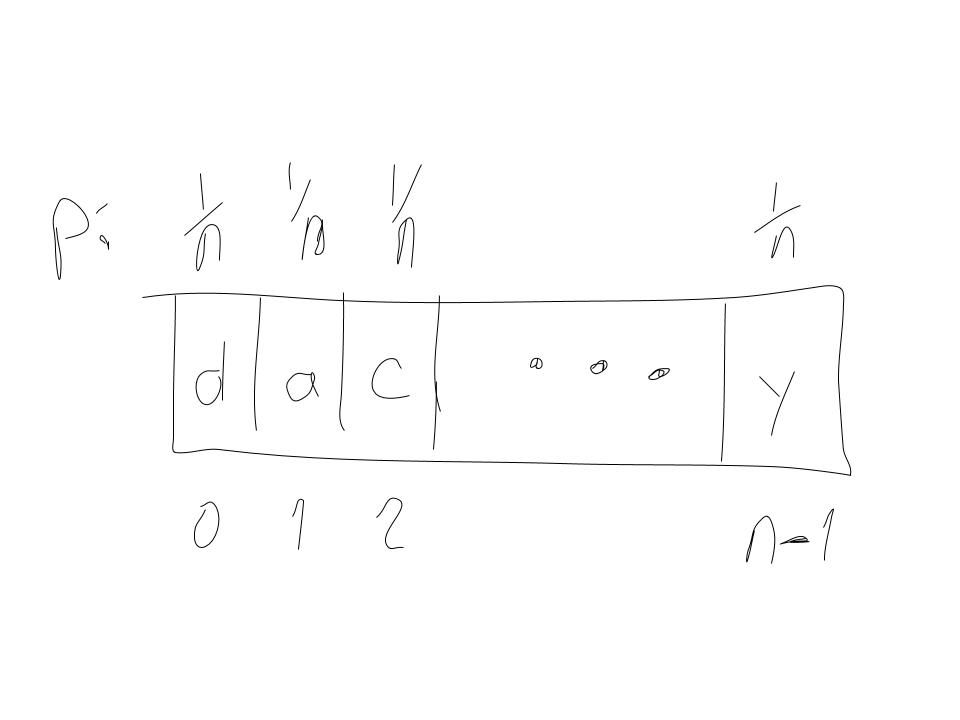 p: 1/n 1/n 1/n 1/n
d a c ... y
0 1 2 n-1